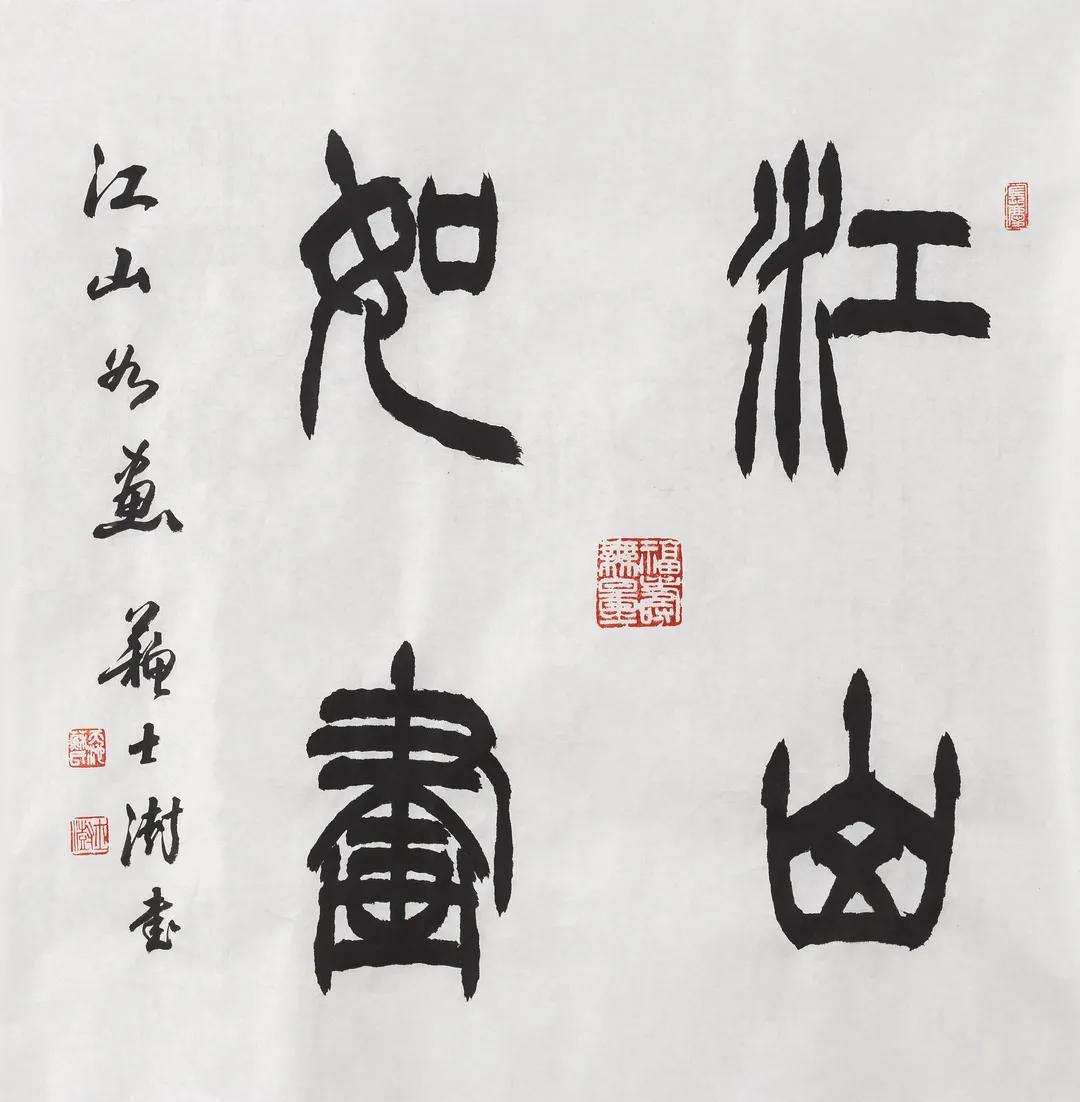 江山
如畫
江山如畫 蘇士澍書
福壽無量